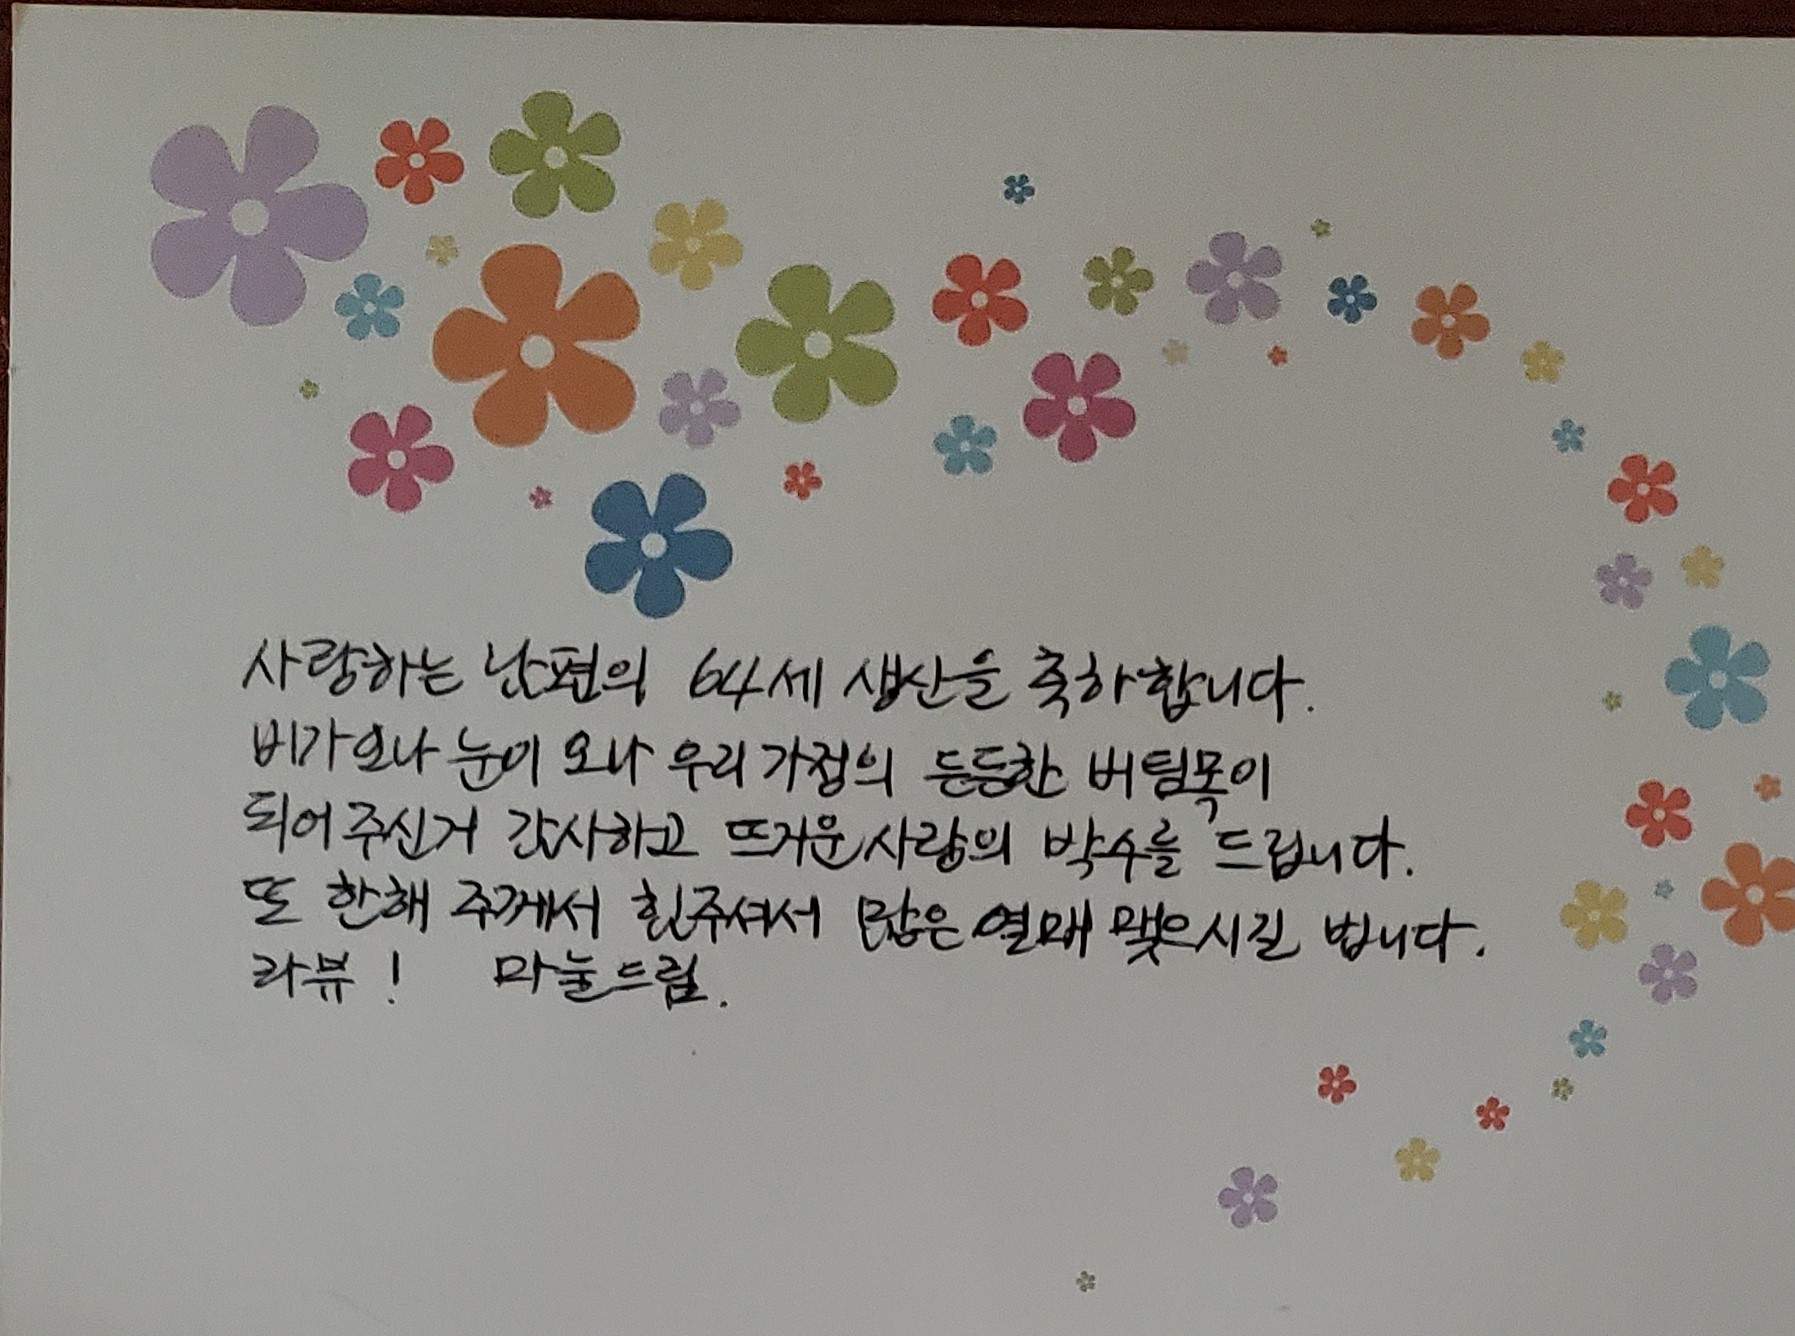 사랑하는 남편의 64세 생신을 축하합니다.
비가오나 눈이 오나 우리가정의 든든한 버팀목이
되어주신거 감사하고 뜨거운 사랑의 박수를 드립니다.
또 한해 주께서 힘주셔서 많은 열매 맺으시길 빕니다.
라뷰! 마눌드림.